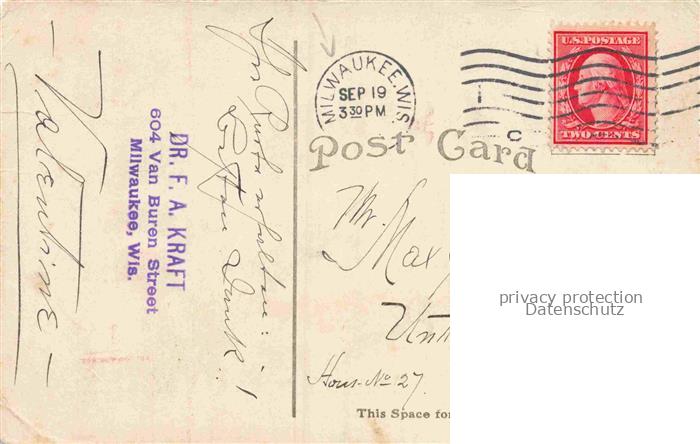 MILWAUKEE, WIS.
SEP 19
3 30 PM
C
U.S. POSTAGE
TWO CENTS
Post Card
— Valentine —
DR. F. A. KRAFT
604 Van Buren Street
Milwaukee, Wis.
Karte erhalten:
Dank!
Mr. Max
Hous-No 27.
This Space for
privacy protection
Datenschutz